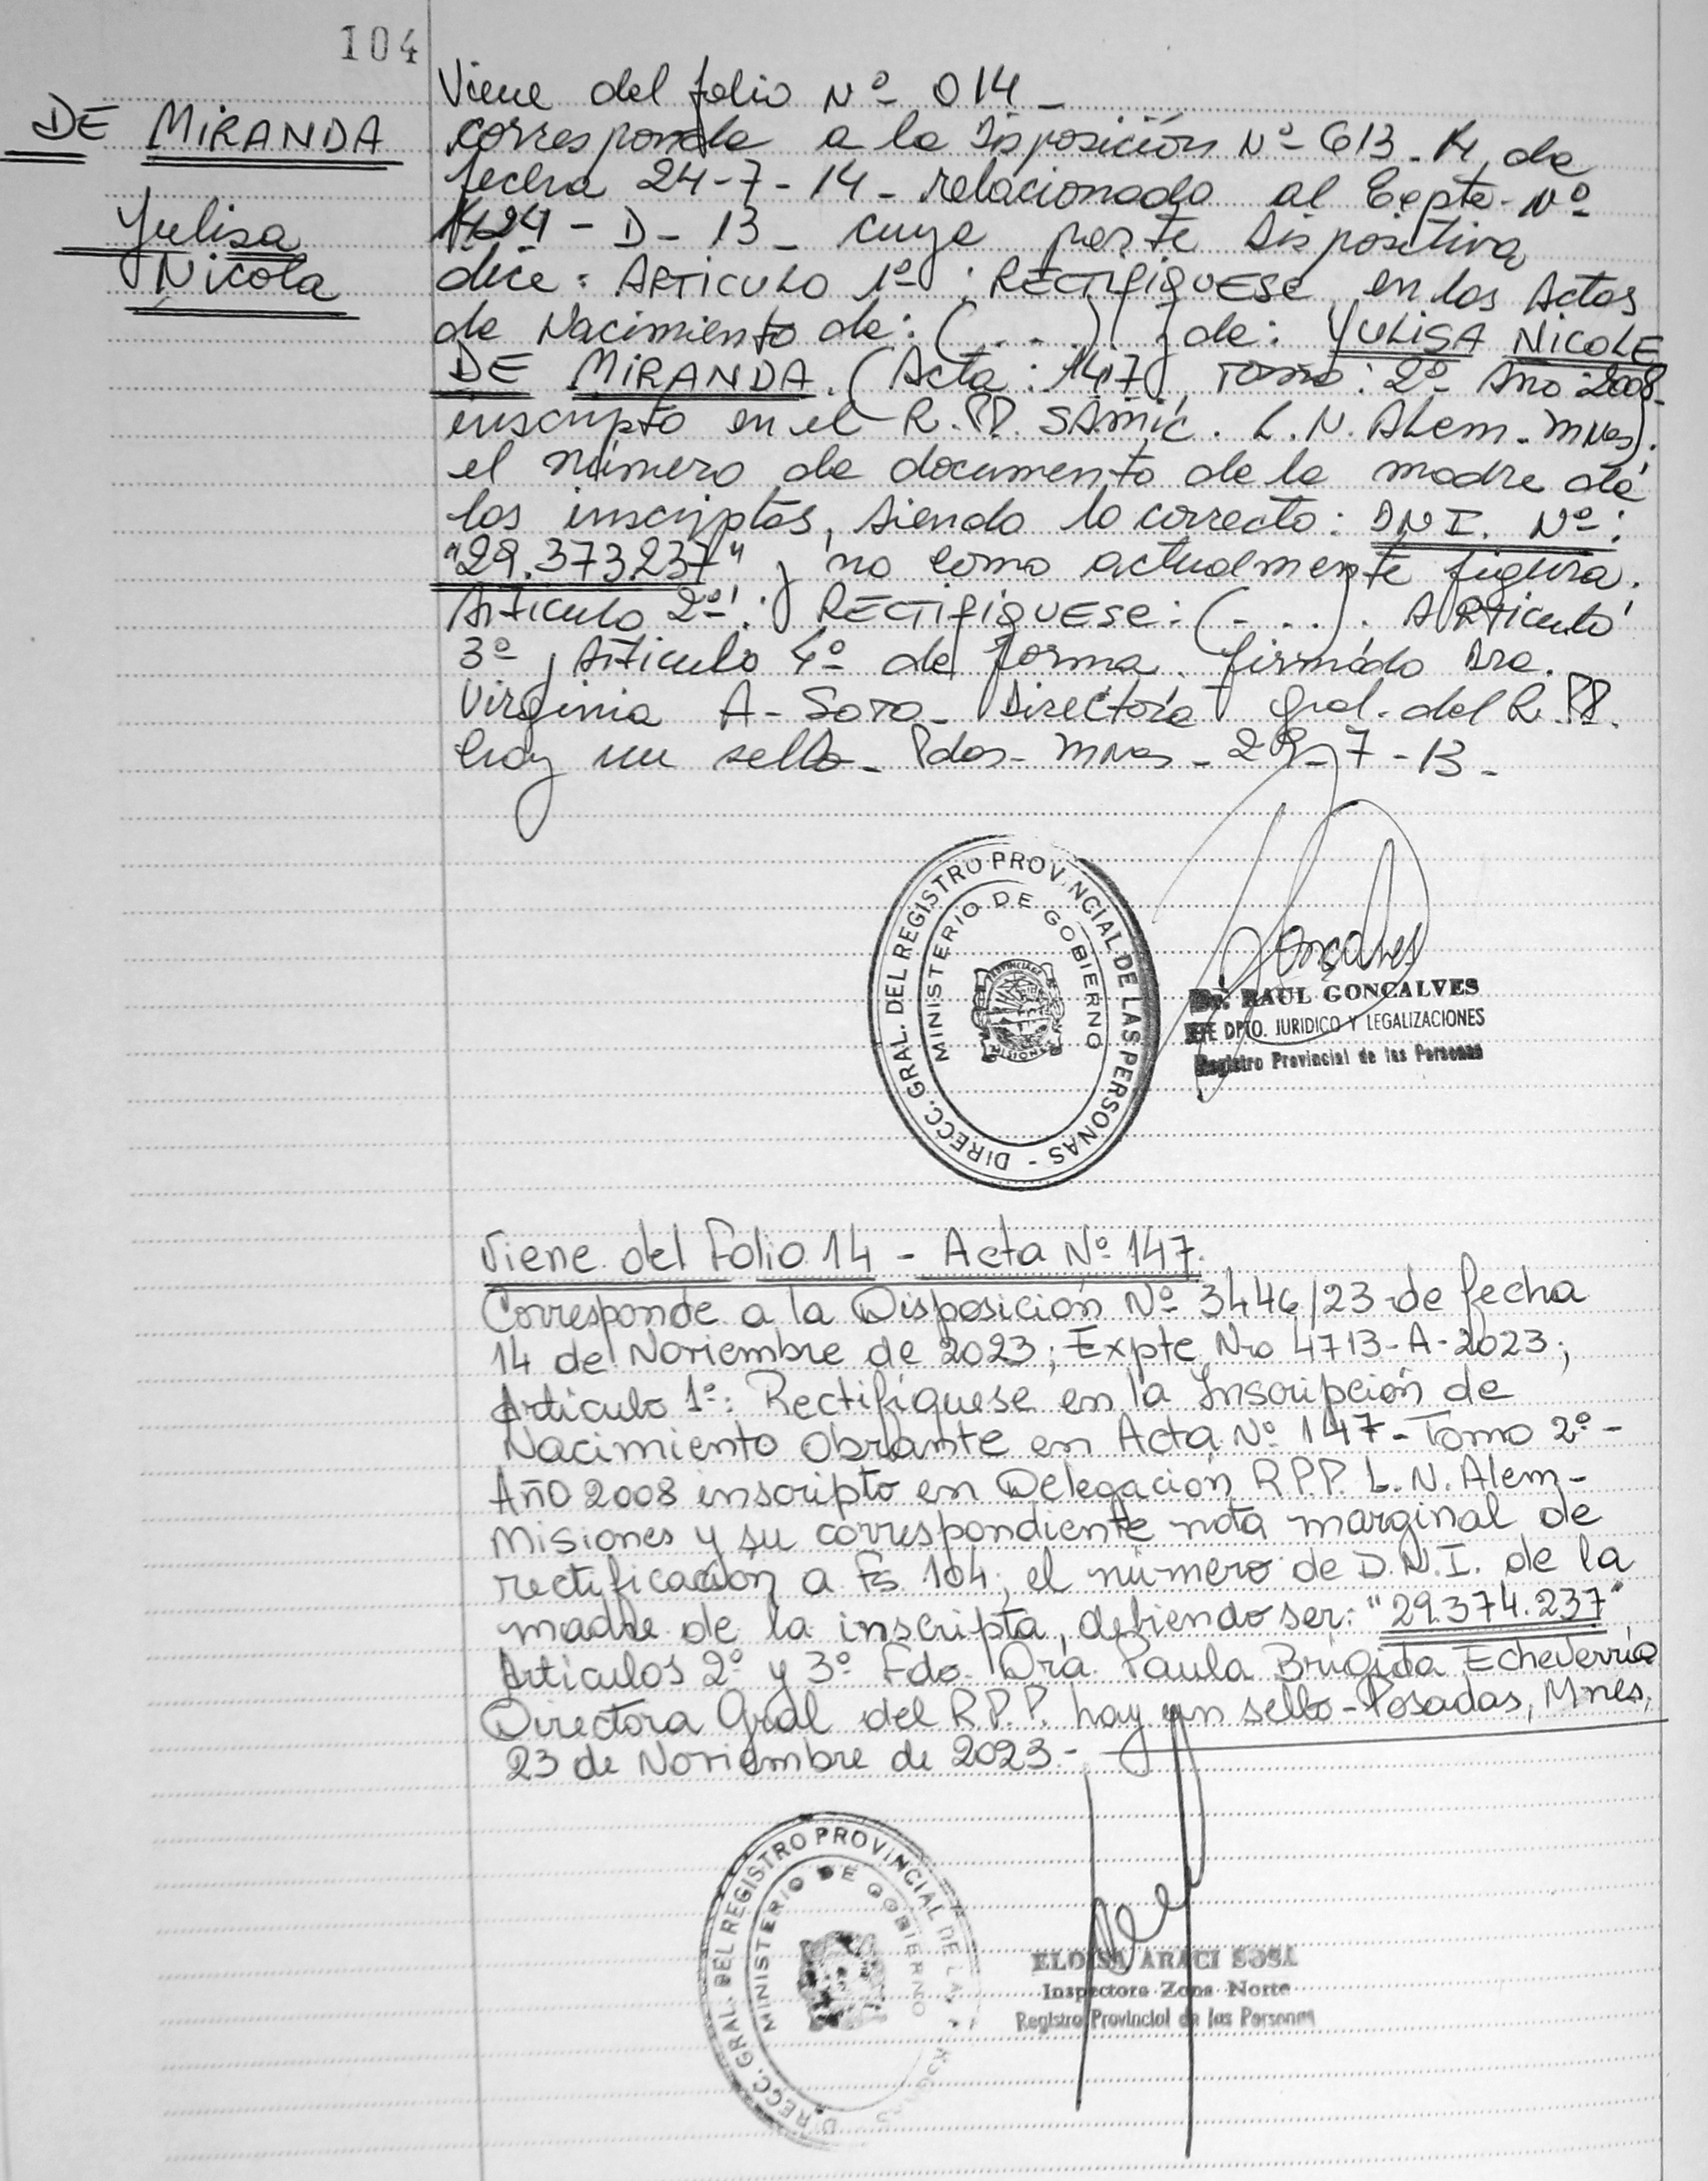 104
DE MIRANDA
Yulisa
Nicole
Viene del folio Nº 014 -
corresponde a la Disposición Nº 613 - R, de
fecha 24-7-14 - relacionado al Expte - Nº
1424 - D - 13 - cuya parte dispositiva
dice: ARTICULO 1º: RECTIFIQUESE, en las Actas
de Nacimiento de: (...) y de: YULISA NICOLE
DE MIRANDA. (Acta: 147, Tomo: 2º Año: 2008-
inscripto en el R.PP. SAMIC. L.N. Alem - Mnes).
el número de documento de la madre de
los inscriptos, siendo lo correcto: DNI. Nº:
"29.373.237" y no como actualmente figura.
Artículo 2º: RECTIFIQUESE: (...). ARTICULO
3º, Artículo 4º de forma. firmado Dra.
Virginia A. Soto - Directora Gral. del R.PP.
hay un sello - Pdas - Mnes - 29-7-13 -
DIRECC. GRAL. DEL REGISTRO PROVINCIAL DE LAS PERSONAS -
MINISTERIO DE GOBIERNO
PROVINCIA DE
MISIONES
Dr. RAUL GONCALVES
JEFE DPTO. JURIDICO Y LEGALIZACIONES
Registro Provincial de las Personas
Viene del Folio 14 - Acta Nº 147.
Corresponde a la Disposición Nº 3446/23 de fecha
14 de Noviembre de 2023; Expte Nro 4713-A-2023;
Artículo 1º: Rectifíquese en la Inscripción de
Nacimiento Obrante en Acta Nº 147 - Tomo 2º -
Año 2008 inscripto en Delegación R.P.P. L.N. Alem -
Misiones y su correspondiente nota marginal de
rectificación a Fs 104, el número de D.N.I. de la
madre de la inscripta, debiendo ser: "29.374.237"
Artículos 2º y 3º Fdo. Dra. Paula Brígida Echeverría
Directora Gral del R.P.P. hay un sello - Posadas, Mnes,
23 de Noviembre de 2023 -
DIRECC. GRAL. DEL REGISTRO PROVINCIAL DE LAS
MINISTERIO DE GOBIERNO
ELOISA ARACI SOSA
Inspectora Zona Norte
Registro Provincial de las Personas